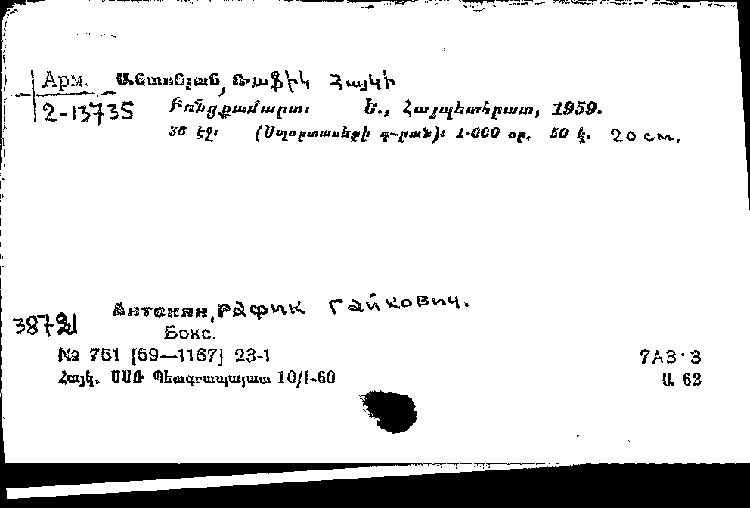 Арм. Անտոնյան, Ռաֆիկ Հայկի
2-13735 Բռնցքամարտ։ Ե., Հայպետհրատ, 1959.
36 էջ։ (Սպորտսմենի գ-րան)։ 1.000 օր. 50 կ. 20 см.
Антонян, Рафик Гайкович.
38721
Бокс.
№ 761 [59—1167] 23-1 7А3·3
Հայկ. ՍՍՌ Պետգրապալատ 10/I-60 Ա 62